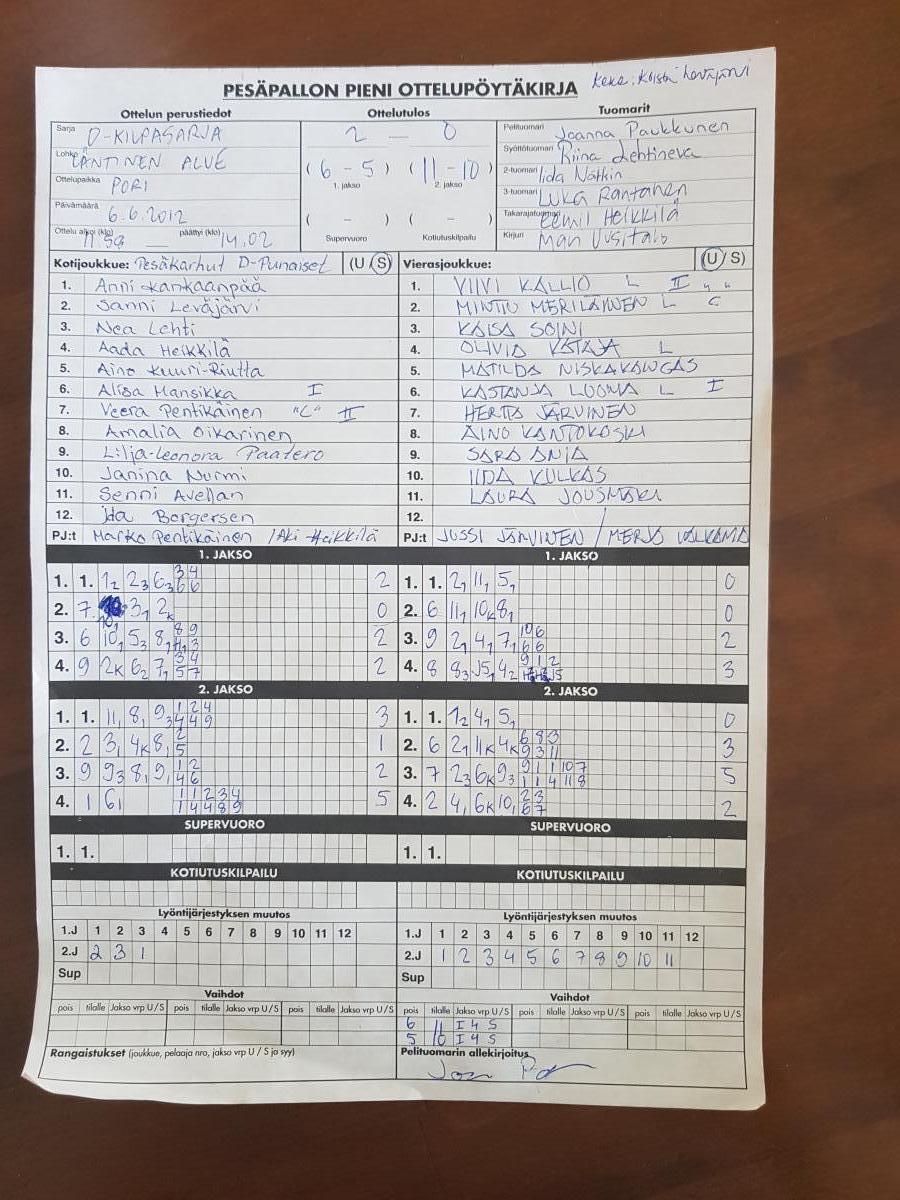 Keke: Kaisa Leväjärvi
PESÄPALLON PIENI OTTELUPÖYTÄKIRJA
Ottelun perustiedot Ottelutulos Tuomarit
Sarja D-KILPASARJA 2 – 0 Pelituomari Joanna Paukkunen
Lohko LÄNTINEN ALUE (6 - 5) (11 - 10) Syöttötuomari Riina Lehtineva
1. jakso 2. jakso 2-tuomari Iida Nätkin
Ottelupaikka PORI 3-tuomari Luka Rantanen
Päivämäärä 6.6.2012 ( - ) ( - ) Takarajatuomari Eemil Heikkilä
Ottelu alkoi (klo) 11.59 päättyi (klo) 14.02 Supervuoro Kotiutuskilpailu Kirjuri Mari Uusitalo
Kotijoukkue: Pesäkarhut D-Punaiset (U/S) Vierasjoukkue: (U/S)
1. Anni Kankaanpää 1. VIIVI KALLIO L II
2. Sanni Leväjärvi 2. MINTTU MERILÄINEN L C
3. Nea Lehti 3. KAISA SOINI
4. Aada Heikkilä 4. OLIVIA KATAJA L
5. Aino Kuuri-Riutta 5. MATILDA NISKAKANGAS
6. Alisa Mansikka I 6. KASTANJA LOOMA L I
7. Veera Pentikäinen "C" II 7. HERTTA JÄRVINEN
8. Amalia Oikarinen 8. AINO KANTOKOSKI
9. Lilja-Leonora Paatero 9. SARA ANIA
10. Janina Nurmi 10. IIDA KULKAS
11. Senni Avellan 11. LAURA JOUSMÄKI
12. Ida Borgersen 12.
PJ:t Marko Pentikäinen / Aki Heikkilä PJ:t JUSSI JÄRVINEN / MERJA VALKAMA
1. JAKSO 1. JAKSO
1. 1. 1₂ 2₃ 6₃ 3 4 6 6 2 1. 1. 2₁ 11₁ 5₁ 0
2. 7 3₁ 2K 0 2. 6 11₁ 10K 8₁ 0
3. 6 10₁ 5₃ 8₁ 8 9 2 3. 9 2₁ 4₁ 7₁ 10 6 6 6 2
4. 9 2K 6₂ 7₁ 3 4 5 7 2 4. 8 8₃ J5₁ 4₂ 9 1 2 3
2. JAKSO 2. JAKSO
1. 1. 11₁ 8₁ 9₃ 1 2 4 4 4 9 3 1. 1. 1₂ 4₁ 5₁ 0
2. 2 3₁ 4K 8₁ 2 5 1 2. 6 2₁ 11K 4K 6 8 3 9 3 11 3
3. 9 9₃ 8₁ 9₁ 1 2 4 6 2 3. 7 2₃ 6K 9₃ 9 1 1 10 7 1 1 4 11 8 5
4. 1 6₁ 1 1 2 3 4 1 4 4 8 9 5 4. 2 4₁ 6K 10₁ 2 3 6 7 2
SUPERVUORO SUPERVUORO
1. 1. 1. 1.
KOTIUTUSKILPAILU KOTIUTUSKILPAILU
Lyöntijärjestyksen muutos Lyöntijärjestyksen muutos
1.J 1 2 3 4 5 6 7 8 9 10 11 12 1.J 1 2 3 4 5 6 7 8 9 10 11 12
2.J 2 3 1 2.J 1 2 3 4 5 6 7 8 9 10 11
Sup Sup
Vaihdot Vaihdot
pois tilalle Jakso vrp U/S pois tilalle Jakso vrp U/S pois tilalle Jakso vrp U/S pois tilalle Jakso vrp U/S pois tilalle Jakso vrp U/S pois tilalle Jakso vrp U/S
6 11 I 4 S
5 10 I 4 S
Rangaistukset (joukkue, pelaaja nro, jakso vrp U / S ja syy) Pelituomarin allekirjoitus